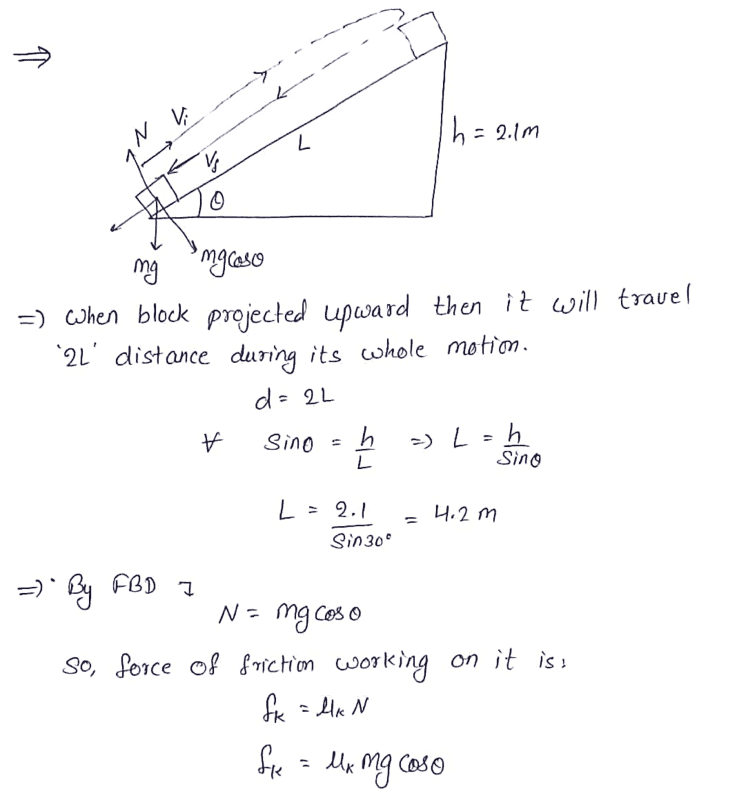 ⇒
N
Vi
Vf
L
h = 2.1m
θ
mg
mgcosθ
=) When block projected upward then it will travel
'2L' distance during its whole motion.
d = 2L
∀ Sinθ = h/L => L = h/Sinθ
L = 2.1/Sin30° = 4.2 m
=) By FBD
N = mg cosθ
So, force of friction working on it is:
fk = μk N
fk = μk mg cosθ